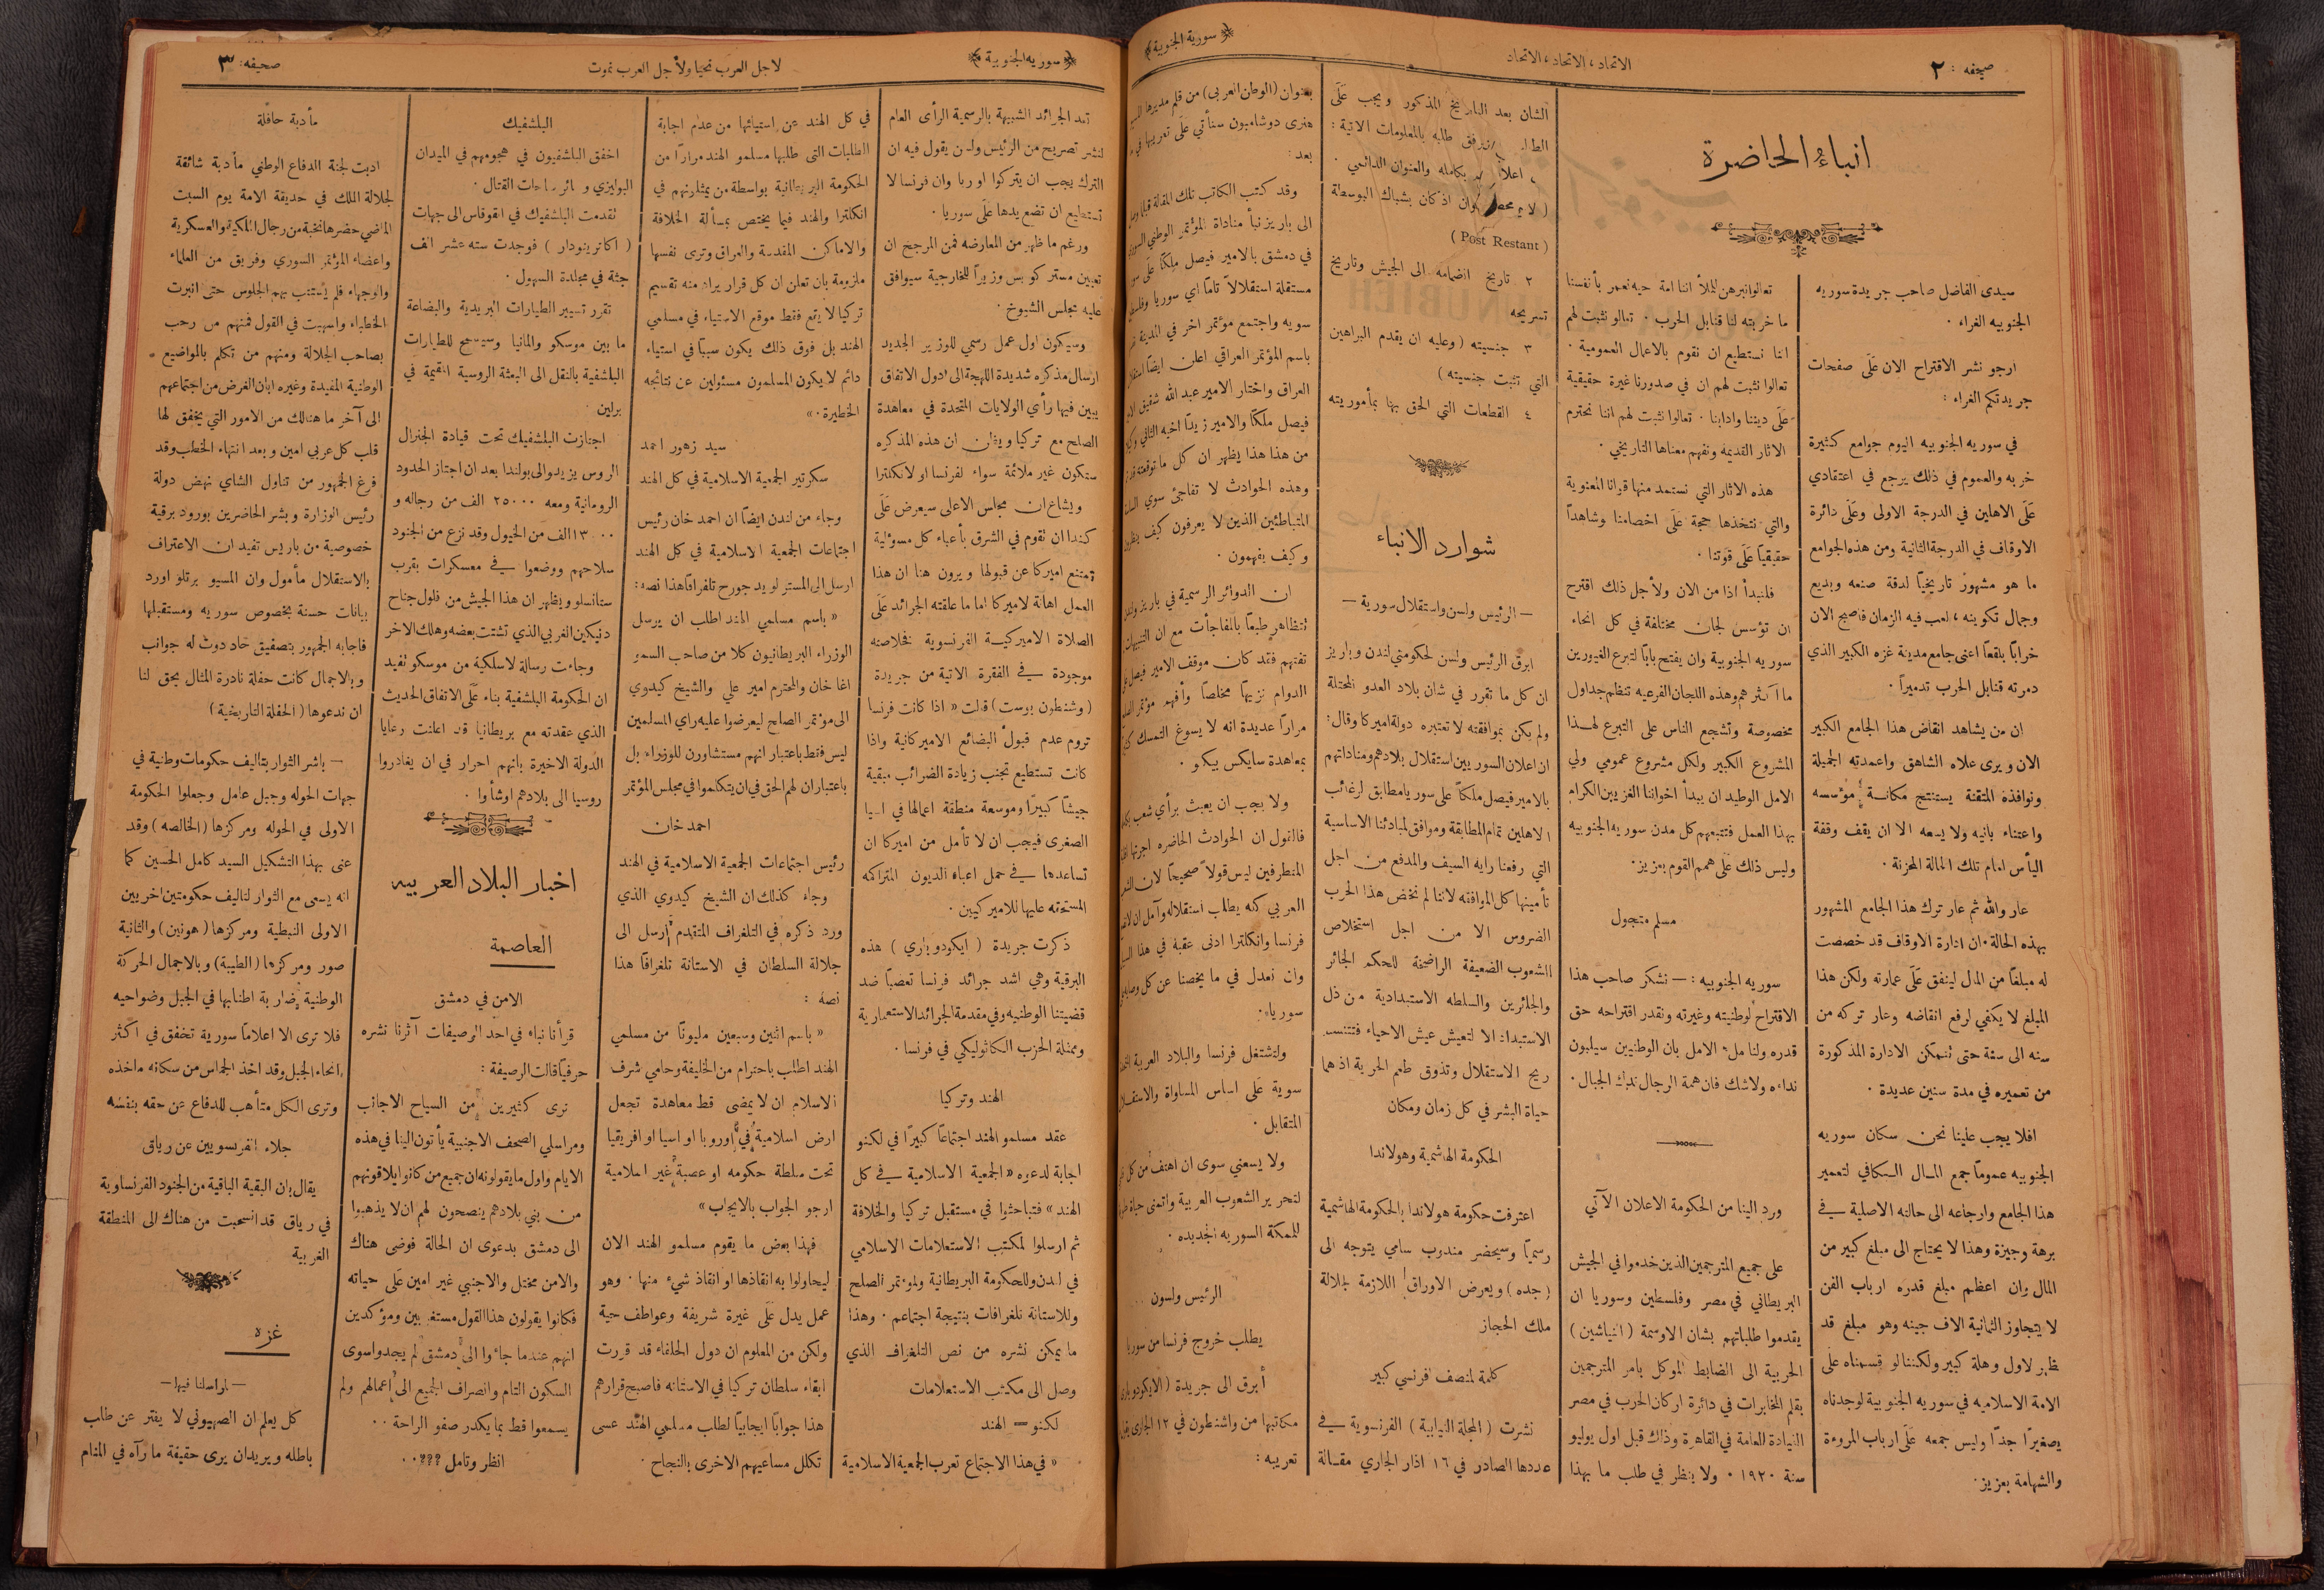 صحيفه : ٢
الاتحاد ، الاتحاد ، الاتحاد
﴿ سورية الجنوبية ﴾
انباء الحاضرة
سيدى الفاضل صاحب جريدة سوريه
الجنوبيه الغراء ·
ارجو نشر الاقتراح الان عَلَى صفحات
جريدتكم الغراء :
في سوريه الجنوبيه اليوم جوامع كثيرة
خربه والعموم في ذلك يرجع في اعتقادي
عَلَى الاهلين في الدرجة الاولى وعَلَى دائرة
الاوقاف في الدرجة الثانية ومن هذه الجوامع
ما هو مشهور تاريخيًا لدقة صنعه وبديع
وجمال تكوينه ، لعب فيه الزمان فاصبح الان
خرابًا بلقعًا اعنى جامع مدينة غزه الكبير الذي
دمرته قنابل الحرب تدميراً ·
ان من يشاهد انقاض هذا الجامع الكبير
الان ويرى علاه الشاهق واعمدته الجميلة
ونوافذه المتقنة يستنتج مكانة مؤسسه
واعتناء بانيه ولا يسعه الا ان يقف وقفة
اليأس امام تلك الحالة المحزنة ·
عار والله ثم عار ترك هذا الجامع المشهور
بهذه الحالة · ان ادارة الاوقاف قد خصصت
له مبلغًا من المال لينفق عَلَى عمارته ولكن هذا
المبلغ لا يكفي لرفع انقاضه وعار تركه من
سنه الى سنة حتى تتمكن الادارة المذكورة
من تعميره في مدة سنين عديدة ·
افلا يجب علينا نحن سكان سوريه
الجنوبيه عمومًا جمع المال الكافي لتعمير
هذا الجامع وارجاعه الى حالته الاصلية في
برهة وجيزة وهذا لا يحتاج الى مبلغ كبير من
المال وان اعظم مبلغ قدره ارباب الفن
لا يتجاوز الثمانية الاف جينه وهو مبلغ قد
ظهر لاول وهلة كبير ولكننا لو قسمناه عَلَى
الامة الاسلاميه في سوريه الجنوبية لوجدناه
يصغيرًا جدًا وليس جمعه عَلَى ارباب المروءة
والشهامة بعزيز ·
تعالوا نبرهن للملأ اننا امة حيه نعمر بأنفسنا
ما خربته لنا قنابل الحرب · تعالو نثبت لهم
اننا نستطيع ان نقوم بالاعمال العمومية ·
تعالوا نثبت لهم ان في صدورنا غيرة حقيقية
عَلَى ديننا وادابنا · تعالوا نثبت لهم اننا نحترم
الاثار القديمه ونفهم معناها التاريخي ·
هذه الاثار التي نستمد منها قوانا المعنوية
والتي نتخذها حجة عَلَى اخصامنا وشاهداً
حقيقيًا عَلَى قوتنا ·
فلنبدأ اذا من الان ولأجل ذلك اقترح
ان تؤسس لجان مختلفة في كل انحاء
سوريه الجنوبية وان يفتح بابًا لتبرع الغيورين
ما آثرهم وهذه اللجان الفرعيه تنظم جداول
مخصوصة وتشجع الناس على التبرع لهذا
المشروع الكبير ولكل مشروع عمومي ولي
الامل الوطيد ان يبدأ اخواننا الغزيين الكرام
بهذا العمل فتتبعهم كل مدن سوريه الجنوبيه
وليس ذلك عَلَى همم القوم بعزيز ·
مسلم متجول
سوريه الجنوبيه : — نشكر صاحب هذا
الاقتراح لوطنيته وغيرته ونقدر اقتراحه حق
قدره ولنا مل، الامل بان الوطنيين سيلبون
نداءه ولاشك فان همة الرجال تدك الجبال ·
ورد الينا من الحكومة الاعلان الآتي
على جميع المترجمين الذين خدموا في الجيش
البريطاني في مصر وفلسطين وسوريا ان
يقدموا طلباتهم بشان الاوسمة ( النياشين )
الحربية الى الضابط الموكل بامر المترجمين
بقلم المخابرات في دائرة اركان الحرب في مصر
القيادة العامة في القاهرة وذاك قبل اول يوليو
سنة ١٩٢٠ · ولا ينظر في طلب ما بهذا
الشان بعد التاريخ المذكور ويجب عَلَى
ان يرفق طلبه بالمعلومات الاتية :
بكامله والعنوان الدائمي ·
وان اذ كان بشباك البوسطة
( Post Restant )
٢ تاريخ انضمامه الى الجيش وتاريخ
تسريحه
٣ جنسيته ( وعليه ان يقدم البراهين
التي تثبت جنسيته )
٤ القطعات التي الحق بها بمأموريته
شوارد الانباء
— الرئيس ولسن واستقلال سورية —
ابرق الرئيس ولسن لحكومتي لندن وباريز
ان كل ما تقرر في شان بلاد العدو المحتلة
ولم يكن بموافقته لا تعتبره دولة اميركا وقال :
ان اعلان السوريين استقلال بلادهم ومناداتهم
بالامير فيصل ملكًا على سوريا مطابق لرغائب
الاهلين تمام المطابقة وموافق لمبادئنا الاساسية
التي رفعنا رايه السيف والمدفع من اجل
تأمينها كل الموافقه لاننا لم نخض هذا الحرب
الضروس الا من اجل استخلاص
الشعوب الضعيفة الراضخة للحكم الجائر
والجائرين والسلطه الاستبدادية من ذل
الاستبداد الا لتعيش عيش الاحياء فتنسم
ريح الاستقلال وتذوق طعم الحرية اذ هما
حياة البشر في كل زمان ومكان
الحكومة الهاشمية وهولاندا
اعترفت حكومة هولاندا بالحكومة الهاشمية
رسميًا وسيحضر مندوب سامي يتوجه الى
( جده ) ويعرض الاوراق اللازمة لجلالة
ملك الحجاز
كلمة لمنصف افرنسي كبير
نشرت ( المجلة النيابية ) الفرنسوية في
عددها الصادر في ١٦ اذار الجاري مقالة
بعنوان ( الوطن العربي ) من قلم مديرها
هنرى دوشامبون سنأتي عَلَى تعريبها في
بعد :
وقد كتب الكاتب تلك المقالة قبل
الى باريز نبأ مناداة المؤتمر الوطني السوري
في دمشق بالامير فيصل ملكًا عَلَى
مستقلة استقلالاً تامًا اي سوريا
سويه واجتمع مؤتمر اخر في المدينة
باسم المؤتمر العراقي اعلن ايضًا استقلال
العراق واختار الامير عبد الله شقيق
فيصل ملكًا والامير زيدًا اخيه الثاني
من هذا هذا يظهر ان كل ما توقعته
وهذه الحوادث لا تفاجئ سوي
المتباطئين الذين لا يعرفون كيف ينظرون
وكيف يفهمون ·
ان الدوائر الرسمية في باريز
تتظاهر طبعًا بالمفاجآت مع ان
تفتهم فقد كان موقف الامير فيصل
الدوام نزيهًا مخلصًا وأفهم مؤتمر
مرارًا عديدة انه لا يسوغ التمسك
بمعاهدة سايكس بيكو ·
ولا يجب ان يعبث برأي شعب
فالقول ان الحوادث الحاضره اجرتها
المتطرفين ليس قولاً صحيحًا لان
العربي كله يطلب استقلاله وآمل ان
فرنسا وانكلترا ادنى عقبة في هذا
وان نعدل في ما يخصنا عن كل
سوريا» ·
ولتشتغل فرنسا والبلاد العربية
سوية عَلَى اساس المساواة
المتقابل ·
ولا يسعني سوى ان اهتف من كل
لتحرير الشعوب العربية واتمنى حياة
للمملكة السوريه الجديده ·
الرئيس ولسون
يطلب خروج فرنسا من سوريا
أبرق الى جريدة
مكاتبها من واشنطون في ١٢ الجاري
تعريبه :
﴿ سوريه الجنوبية ﴾
لاجل العرب نحيا ولأجل العرب نموت
صحيفه : ٣
تمد الجرائد الشبيهة بالرسمية الرأى العام
لنشر تصريح من الرئيس ولسن يقول فيه ان
الترك يجب ان يتركوا اوربا وان فرنسا لا
تستطيع ان تضع يدها عَلَى سوريا ·
ورغم ما ظهر من المعارضه فمن المرجح ان
تعيين مستر كوبس وزيرًا للخارجية سيوافق
عليه مجلس الشيوخ ·
وسيكون اول عمل رسمي للوزير الجديد
ارسال مذكره شديدة اللهجة الى دول الاتفاق
يبين فيها رأي الولايات المتحدة في معاهدة
الصلح مع تركيا ويظن ان هذه المذكره
ستكون غير ملائمة سواء لفرنسا او لانكلترا
ويشاع ان مجلس الاعلى سيعرض عَلَى
كندا ان تقوم في الشرق بأعباء كل مسؤلية
تمتنع اميركا عن قبولها ويرون هنا ان هذا
العمل اهانة لاميركا اما ما علقته الجرائد عَلَى
الصلاة الاميركية الفرنسوية فخلاصته
موجودة في الفقرة الاتية من جريدة
( وشنطون برست ) قالت « اذا كانت فرنسا
تروم عدم قبول البضائع الاميركانية واذا
كانت تستطيع تجنب زيادة الضرائب مبقية
جيشًا كبيرًا وموسعة منطقة اعمالها في اسيا
الصغرى فيجب ان لا تأمل من اميركا ان
تساعدها في حمل اعباء الديون المتراكمه
المستحقه عليها للاميركيين ·
ذكرت جريدة ( ايكودوباري ) هذه
البرقية وهي اشد جرائد فرنسا تعصبًا ضد
قضيتنا الوطنيه وفي مقدمة الجرائد الاستعمارية
وممثلة الحزب الكاثوليكي في فرنسا ·
الهند وتركيا
عقد مسلمو الهند اجتماعًا كبيرًا في لكنو
اجابة لدعوه « الجمعية الاسلامية في كل
الهند » فتباحثوا في مستقبل تركيا والخلافة
ثم ارسلوا لمكتب الاستعلامات الاسلامي
في لندن وللحكومة البريطانية ولمؤتمر الصلح
وللاستانة تلغرافات بنتيجة اجتماعهم · وهذا
ما يمكن نشره من نص التلغراف الذي
وصل الى مكتب الاستعلامات
لكنو — الهند
« في هذا الاجتماع تعرب الجمعية الاسلامية
في كل الهند عن استيائها من عدم اجابة
الطلبات التى طلبها مسلمو الهند مرارًا من
الحكومة البريطانية بواسطة من يمثلونهم في
انكلترا والهند فيما يختص بمسألة الخلافة
والاماكن المقدسة والعراق وترى نفسها
ملزومة بان تعلن ان كل قرار يراد منه تقسيم
تركيا لا يقع فقط موقع الاستياء في مسلمي
الهند بل فوق ذلك يكون سببًا في استياء
دائم لا يكون المسلمون مسئولين عن نتائجه
الخطيرة · »
سيد زهور احمد
سكرتير الجمعية الاسلامية في كل الهند
وجاء من لندن ايضًا ان احمد خان رئيس
اجتماعات الجمعية الاسلامية في كل الهند
ارسل الى المستر لويد جورج تلغرافًا هذا نصه :
« باسم مسلمي الهند اطلب ان يرسل
الوزراء البريطانيون كلا من صاحب السمو
اغا خان والمحترم امير علي والشيخ كيدوي
الى مؤتمر الصلح ليعرضوا عليه راي المسلمين
ليس فقط باعتبار انهم مستشاورن للوزراء بل
باعتبار ان لهم الحق في ان يتكلموا في مجلس المؤتمر
احمد خان
رئيس اجتماعات الجمعية الاسلامية في الهند
وجاء كذلك ان الشيخ كيدوي الذي
ورد ذكره في التلغراف المتقدم ارسل الى
جلالة السلطان في الاستانة تلغرافًا هذا
نصه :
« باسم اثنين وسبعين مليونًا من مسلمي
الهند اطلب باحترام من الخليفة وحامي شرف
الاسلام ان لا يمضى قط معاهدة تجعل
ارض اسلامية في اوروبا او اسيا او افريقيا
تحت سلطة حكومه او عصبة غير اسلامية
ارجو الجواب بالايجاب »
فهذا بعض ما يقوم مسلمو الهند الان
ليحاولوا به انقاذها او انقاذ شيء منها · وهو
عمل يدل عَلَى غيرة شريفة وعواطف حية
ولكن من المعلوم ان دول الحلفاء قد قررت
ابقاء سلطان تركيا في الاستانه فاصبح قرارهم
هذا جوابًا ايجابيًا لطلب مسلمي الهند عسى
تكلل مساعيهم الاخرى بالنجاح ·
البلشفيك
اخفق البلشفيون في هجومهم في الميدان
البوليزي وسائر ساحات القتال ·
تقدمت البلشفيك في القوقاس الى جهات
( اكاترينودار ) فوجدت سته عشر الف
جثة في مجلدة السهول ·
تقرر تسيير الطيارات البريدية والبضاعة
ما بين موسكو والمانيا وسيسمح للطيارات
البلشفية بالنقل الى البعثة الروسية المقيمة في
برلين ·
اجتازت البلشفيك تحت قيادة الجنرال
الروس يزيدو الى بولندا بعد ان اجتاز الحدود
الرومانية ومعه ٢٥٠٠٠ الف من رجاله و
١٣٠٠٠ الف من الخيول وقد نزع من الجنود
سلاحهم ووضعوا في معسكرات بقرب
ستانسلو ويظهر ان هذا الجيش من فلول جناح
دنيكين الغربي الذي تشتت بعضه وهلك الاخر
وجاءت رسالة لاسلكية من موسكو تفيد
ان الحكومة البلشفية بناء عَلَى الاتفاق الحديث
الذي عقدته مع بريطانيا قد اعلنت رعايا
الدولة الاخيرة بانهم احرار في ان يغادروا
روسيا الى بلادهم اوشأوا ·
اخبار البلاد العربيه
العاصمة
الامن في دمشق
قرأنا نباء في احد الرصيفات آثرنا نشره
حرفيًا قالت الرصيفة :
نرى كثيرين من السياح الاجانب
ومراسلي الصحف الاجنبية يأتون الينا في هذه
الايام واول ما يقولونه ان جميع من كانوا يلاقونهم
من بني بلادهم ينصحون لهم ان لا يذهبوا
الى دمشق بدعوى ان الحالة فوضى هناك
والامن مختل والاجنبي غير امين عَلَى حياته
فكانوا يقولون هذا القول مستغربين ومؤكدين
انهم عندما جاءوا الى دمشق لم يجدوا سوى
السكون التام وانصراف الجميع الى اعمالهم ولم
يسمعوا قط بما يكدر صفو الراحة ··
انظر وتامل ؟؟؟ ··
مأدبة حافلة
ادبت لجنة الدفاع الوطني مأدبة شائقة
لجلالة الملك في حديقة الامة يوم السبت
الماضي حضرها نخبة من رجال الملكية والعسكرية
واعضاء المؤتمر السوري وفريق من العلماء
والوجهاء فلم يستتب بهم الجلوس حتى انبرت
الخطباء واسهبت في القول فمنهم من رحب
بصاحب الجلالة ومنهم من تكلم بالمواضيع
الوطنية المفيدة وغيره ابان الغرض من اجتماعهم
الى آخر ما هنالك من الامور التي يخفق لها
قلب كل عربي امين وبعد انتهاء الخطب وقد
فرغ الجمهور من تناول الشاي نهض دولة
رئيس الوزارة وبشر الحاضرين بورود برقية
خصوصية من باريس تفيد ان الاعتراف
بالاستقلال مأمول وان المسيو برتلو اورد
بيانات حسنة بخصوص سوريه ومستقبلها
فاجابه الجمهور بتصفيق حاد دوت له جوانب
وبالاجمال كانت حفلة نادرة المثال يحق لنا
ان ندعوها ( الحفلة التاريخية )
— باشر الثوار بتاليف حكومات وطنية في
جهات الحوله وجبل عامل وجعلوا الحكومة
الاولى في الحوله ومركزها ( الخالصه ) وقد
عنى بهذا التشكيل السيد كامل الحسين كما
انه يسعى مع الثوار لتاليف حكومتين اخريين
الاولى النبطية ومركزها ( هونين ) والثانية
صور ومركزها ( الطيبة ) وبالاجمال الحركة
الوطنية ضاربة اطنابها في الجبل وضواحيه
فلا ترى الا اعلامًا سورية تخفق في اكثر
انحاء الجبل وقد اخذ الحماس من سكانه ماخذه
وترى الكل متأهب للدفاع عن حقه بنفسه
جلاء الفرنسويين عن رياق
يقال بان البقية الباقية من الجنود الفرنساوية
في رياق قد انسحبت من هناك الى المنطقة
الغربية
غزه
— لمراسلنا فيها —
كل يعلم ان الصهيوني لا يفتر عن طلب
باطله ويريد ان يرى حقيقة ما رآه في المنام